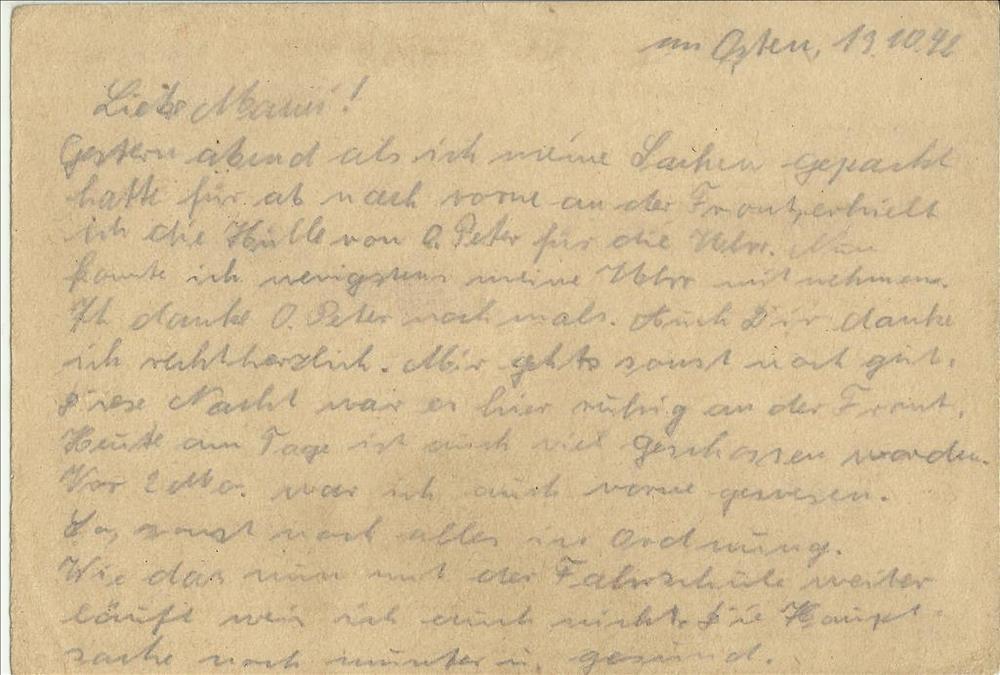 im Osten, 19.10.42
Liebe Mami!
Gestern abend als ich meine Sachen gepackt
hatte für ab nach vorne an der Front, erhielt
ich die Hülle von O. Peter für die Uhr. Nun
konnte ich wenigstens meine Uhr mit nehmen.
Ich danke O. Peter noch mals. Auch Dir danke
ich recht herzlich. Mir gehts sonst noch gut.
Diese Nacht war es hier ruhig an der Front.
Heute am Tage ist auch viel geschossen worden.
Vor 2 Mo. war ich auch vorne gewesen.
So, sonst noch alles in Ordnung.
Wie das nun mit der Fahrschule weiter
läuft weis ich auch nicht. Die Haupt-
sache noch munter u. gesund.